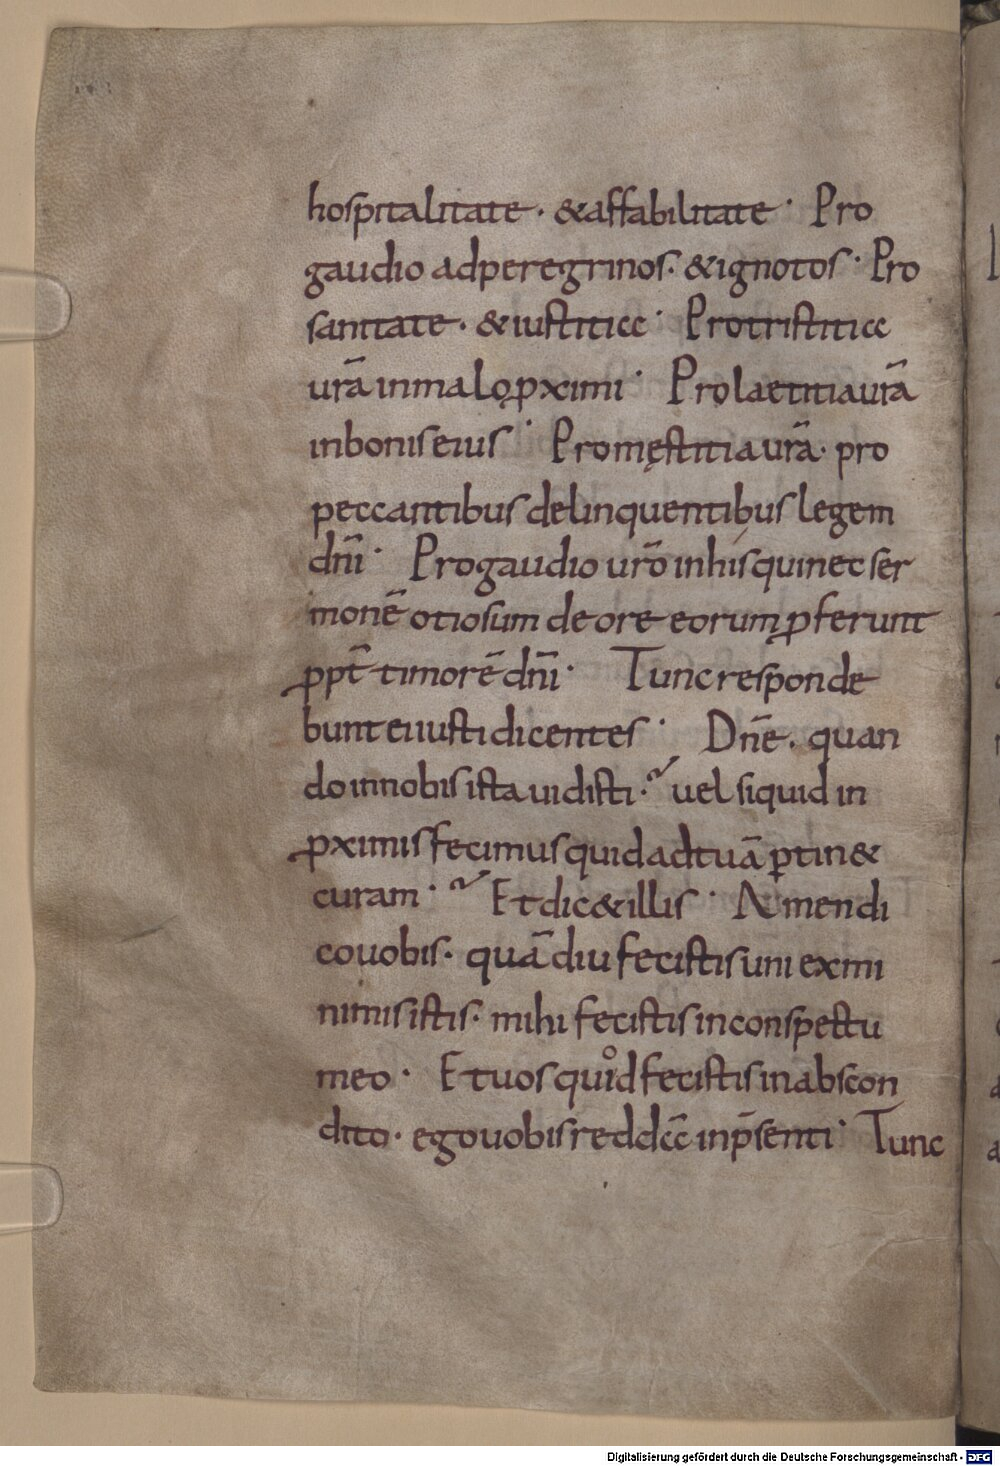 hospitalitate · & affabilitate · Pro
gaudio ad peregrinos · & ignotos · Pro
sanitate · & iustitia · Pro tristitia
urā in malo pximi · Pro laetitia urā
in bonis eius · Pro męstitia urā · pro
peccantibus delinquentibus legem
dn̄i · Pro gaudio urō in his qui nec ser
monē otiosum de ore eorum pferunt
ppt̄ timorē dn̄i · Tunc responde
bunt ei iusti dicentes · Dn̄e · quan
do in nobis ista uidisti · uel siquid in
pximis fecimus quid ad tuā ptin&
curam · Et dic& illis · Amen di
co uobis · quādiu fecistis uni ex mi
nimis istis · mihi fecistis in conspectu
meo · Et uos quid fecistis in abscon
dito · ego uobis reddā in p̄senti · Tunc
Digitalisierung gefördert durch die Deutsche Forschungsgemeinschaft · DFG